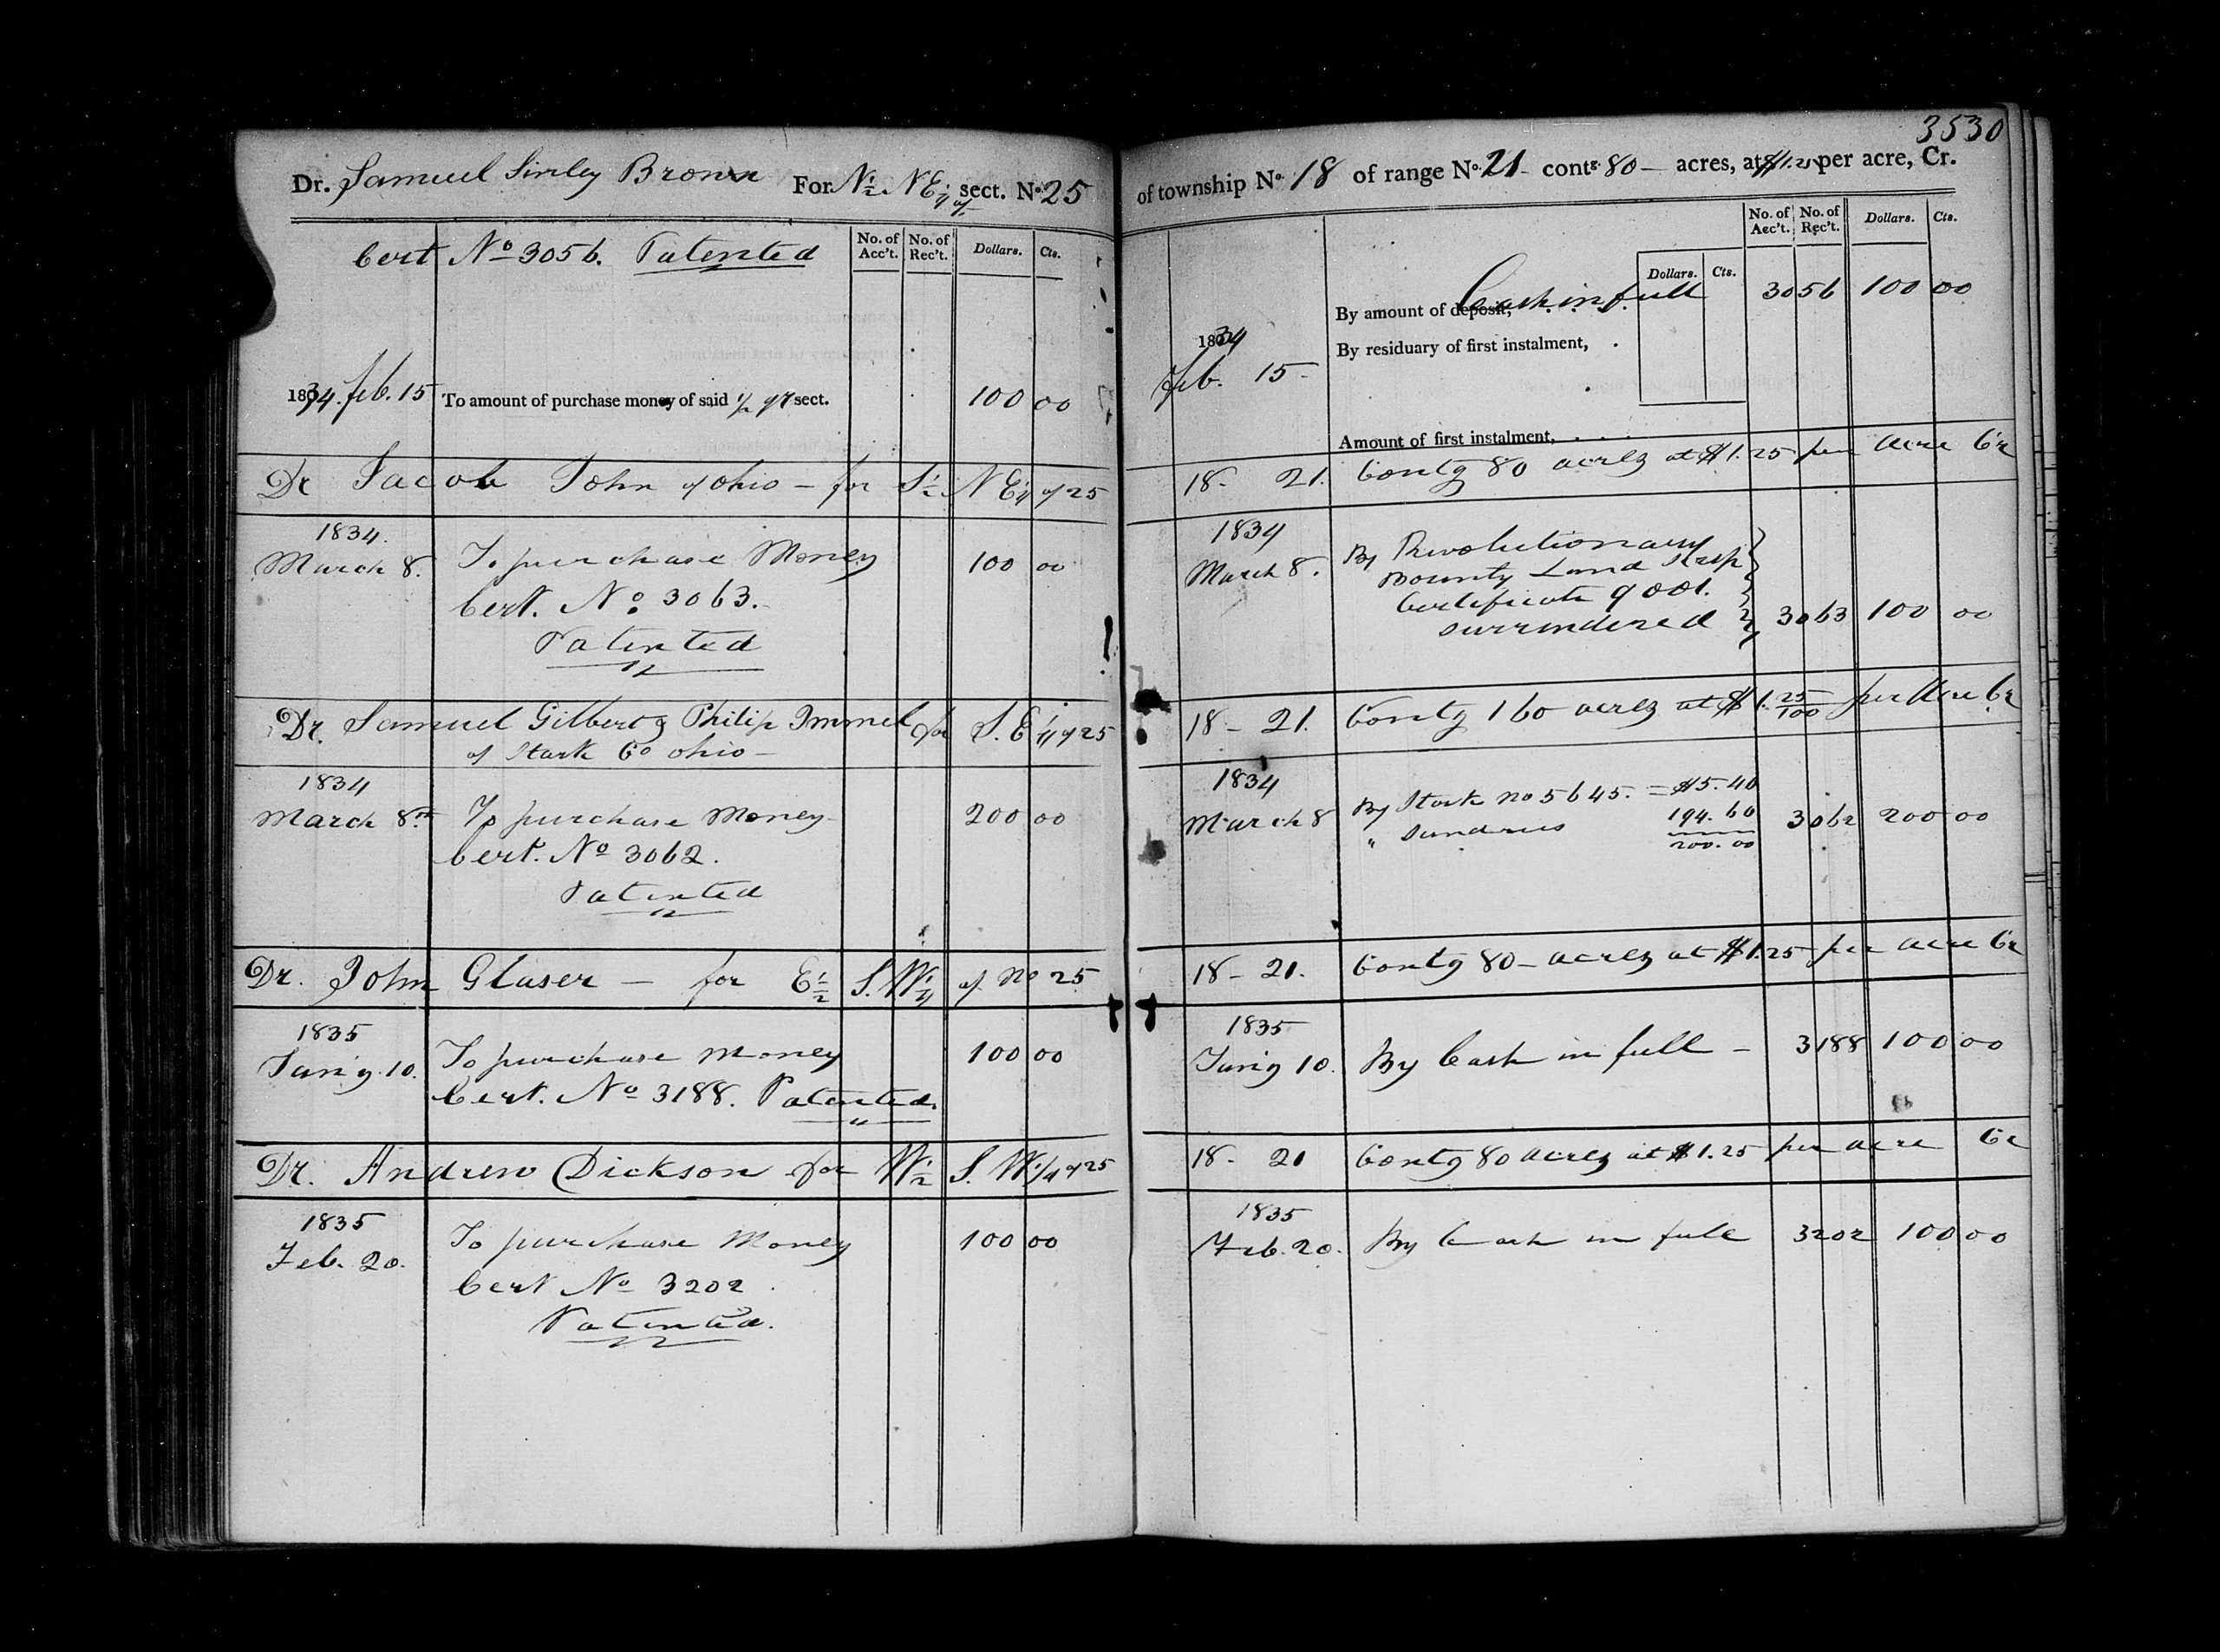 Dr. Samuel Brown For N 1/2 N E 1/4 of sect. No. 25
Cert No 3056. Patented
No. of Acc't. No. of Rec't. Dollars. Cts.
1834. Feb. 15 To amount of purchase money of said 1/2 qr sect. 100 00
Dr Jacob John of Ohio - for S 1/2 N E 1/4 of 25
1834.
March 8. To purchase Money 100 00
Cert. No. 3063.
Patented
Dr. Samuel Gilbert & Philip Immel for S. E 1/4 of 25
of Stark Co Ohio -
1834
March 8th To purchase Money 200 00
Cert. No 3062.
Patented
Dr. John Glaser - for E 1/2 S. W 1/4 of No 25
1835
Jan'y. 10. To purchase Money 100 00
Cert. No 3188. Patented.
Dr. Andrew Dickson for W 1/2 S. W. 1/4 of 25
1835
Feb. 20. To purchase Money 100 00
Cert No 3202.
Patented.
3530
of township No. 18 of range No. 21 - contg. 80 - acres, at $1.25 per acre, Cr.
No. of Acc't. No. of Rec't. Dollars. Cts.
Dollars. Cts.
By amount of deposit, Cash in full 3056 100 00
1834
Feb. 15 - By residuary of first instalment,
Amount of first instalment,
18 - 21. Contg 80 acres at $1.25 per acre Cr
1834
March 8. By Revolutionary
Bounty Land Scrip
Certificate 9001.
surrendered 3063 100 00
18 - 21. Contg 160 acres at $1. 25/100 per Acre Cr
1834
March 8 By Stock no 5645. = $5.40
" Sundries 194.60 3062 200 00
200.00
18 - 21. Contg 80 - acres at $1.25 per acre Cr
1835
Jan'y 10. By Cash in full - 3188 100 00
18 - 21 Contg 80 acres at $1.25 per acre Cr
1835
Feb. 20. By Cash in full 3202 100 00